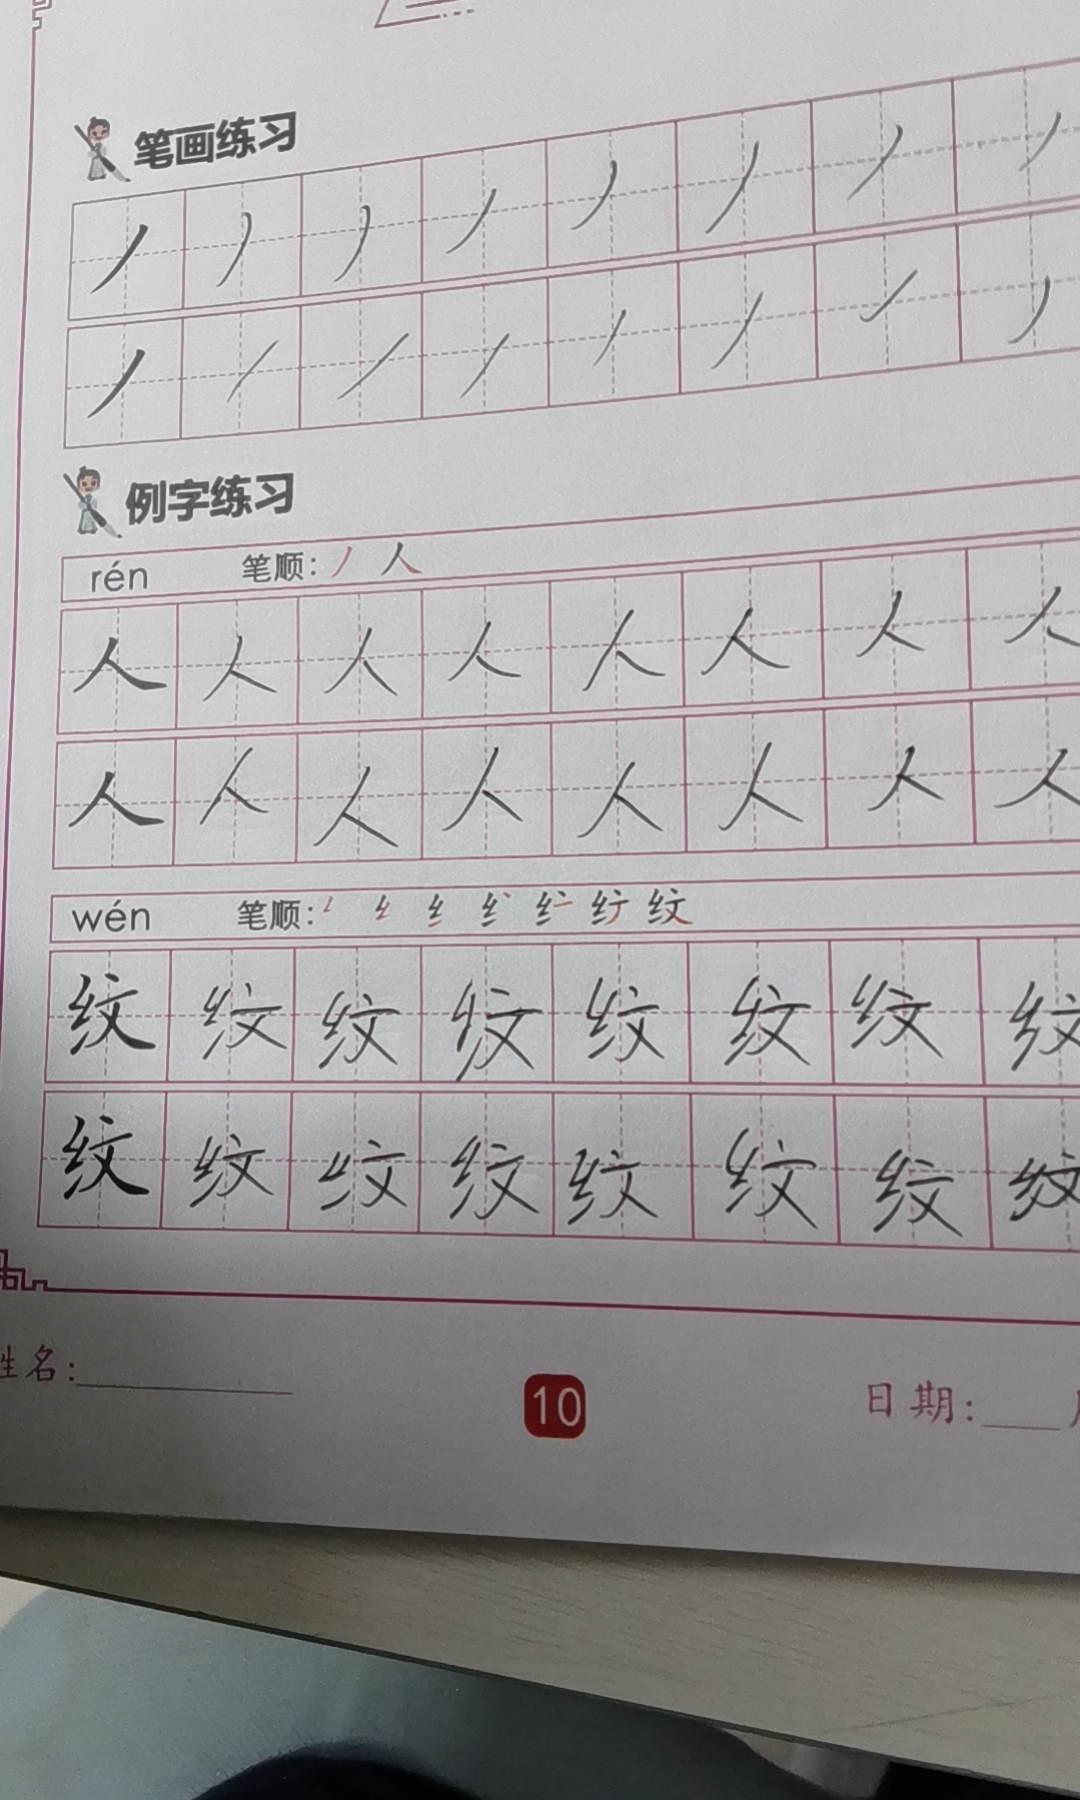 笔画练习
丿 丿 丿 丿 丿 丿 丿 丿
丿 丿 丿 丿 丿 丿 丿 丿
例字练习
rén 笔顺: 丿 人
人 人 人 人 人 人 人 人
人 人 人 人 人 人 人 人
wén 笔顺: 纹
纹 纹 纹 纹 纹 纹 纹 纹
纹 纹 纹 纹 纹 纹 纹 纹
姓名:
10
日期: 月